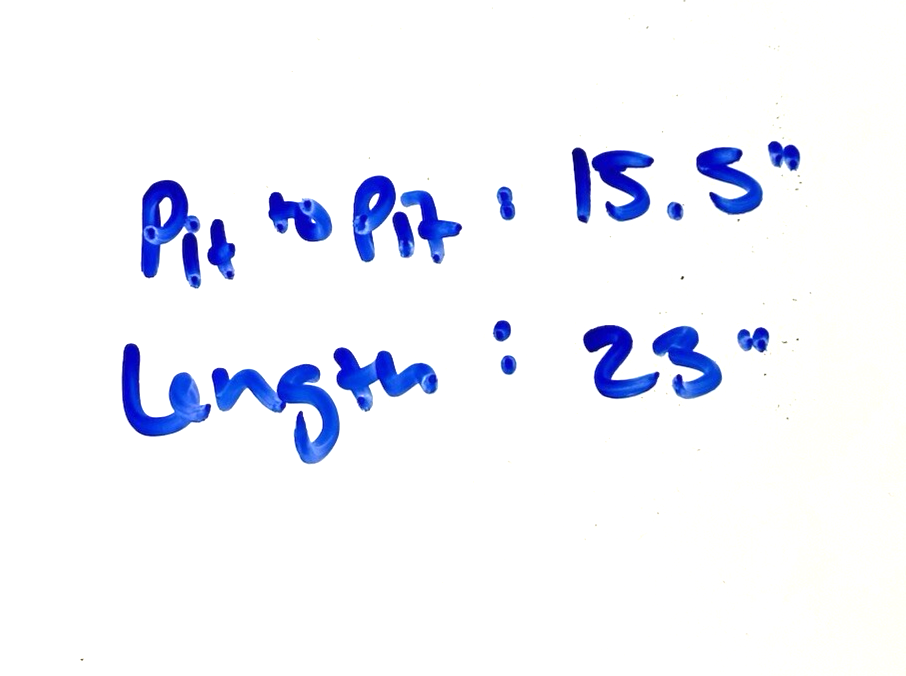 Pit to Pit : 15.5"
Length : 23"